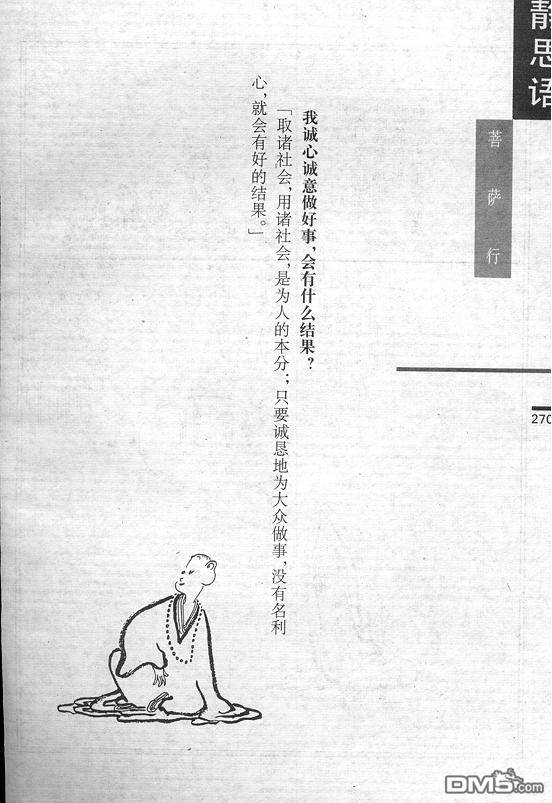 静思语
菩萨行
270
我诚心诚意做好事，会有什么结果？
「取诸社会，用诸社会，是为人的本分；只要诚恳地为大众做事，没有名利
心，就会有好的结果。」
DM5.com